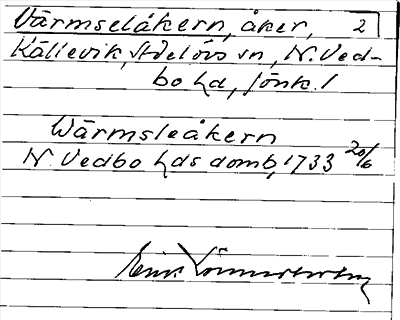 Värmseläkern, åker, 2
Källevik, Adelövs sn, N. Ved-
bo hd, Jönk. l
Wärmsleåkern
N. Vedbo hds domb, 1733 20/6
Erik